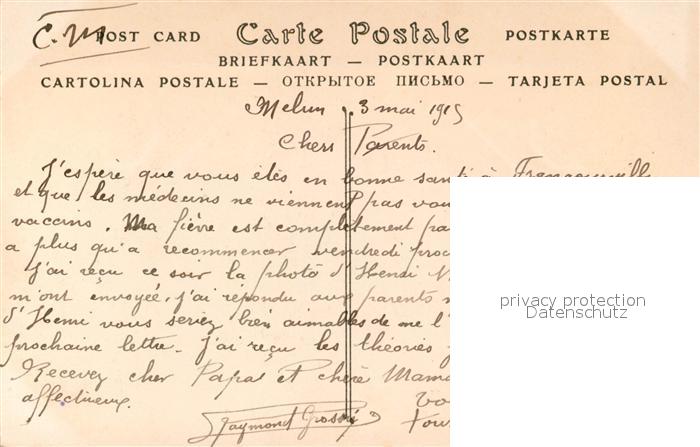 C. M
POST CARD Carte Postale POSTKARTE
BRIEFKAART — POSTKAART
CARTOLINA POSTALE — ОТКРЫТОЕ ПИСЬМО — TARJETA POSTAL
Melun 3 mai 1915
Chers Parents.
J'espère que vous êtes en bonne santé à
et que les médecins ne viennent pas vou
vaccins. Ma fièvre est complètement pa
a plus qu'a recommencer vendredi proc
J'ai reçu ce soir la photo d'Henri
m'ont envoyée, j'ai répondu aux parents
d'Henri vous seriez bien aimables de me l'
prochaine lettre. J'ai reçu les théories
Recevez cher Papa et chère Mama
affectueux. vo
Raymond
privacy protection
Datenschutz